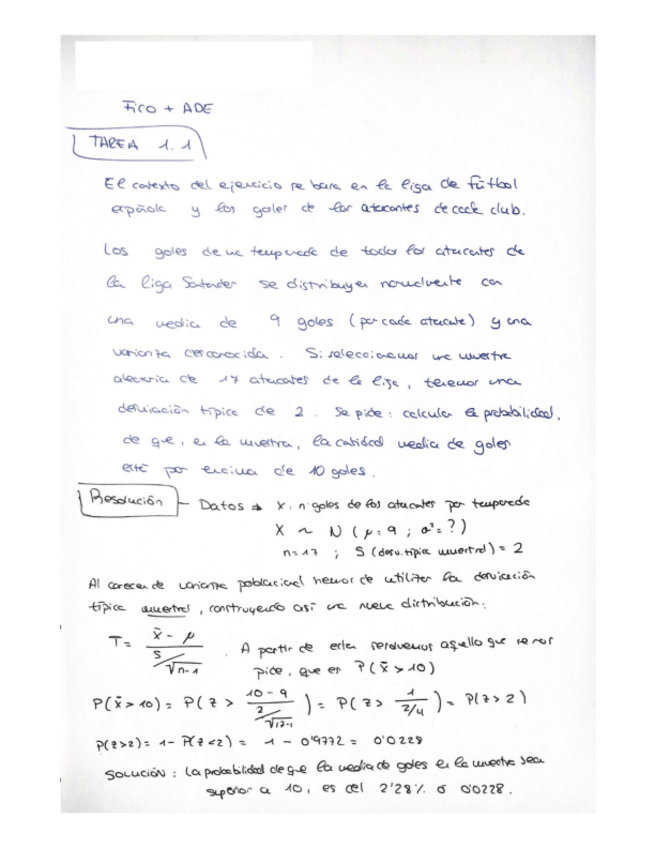 FICO + ADE
TAREA 1.1
El contexto del ejercicio se basa en la liga de fútbol
española y los goles de los atacantes de cada club.
Los goles de una temporada de todos los atacantes de
la liga Santander se distribuyen normalmente con
una media de 9 goles (por cada atacante) y una
varianza desconocida. Si seleccionamos una muestra
aleatoria de 17 atacantes de la liga, tenemos una
desviación típica de 2. Se pide: calcular la probabilidad,
de que, en la muestra, la cantidad media de goles
esté por encima de 10 goles.
Resolución - Datos ⇒ X: nº goles de los atacantes por temporada
X ~ N (μ = 9 ; σ² = ?)
n = 17 ; S (desv. típica muestral) = 2
Al carecer de varianza poblacional hemos de utilizar la desviación
típica muestral, construyendo así una nueva distribución:
T = (x̄ - μ) / (S / √n-1) . A partir de esta resolvemos aquello que se nos
pide, que es P(x̄ > 10)
P(x̄ > 10) = P(z > (10 - 9) / (2 / √17-1)) = P(z > 1 / (2/4)) = P(z > 2)
P(z>2) = 1 - P(z<2) = 1 - 0'9772 = 0'0228
SOLUCIÓN: La probabilidad de que la media de goles en la muestra sea
superior a 10, es del 2'28% o 0'0228.